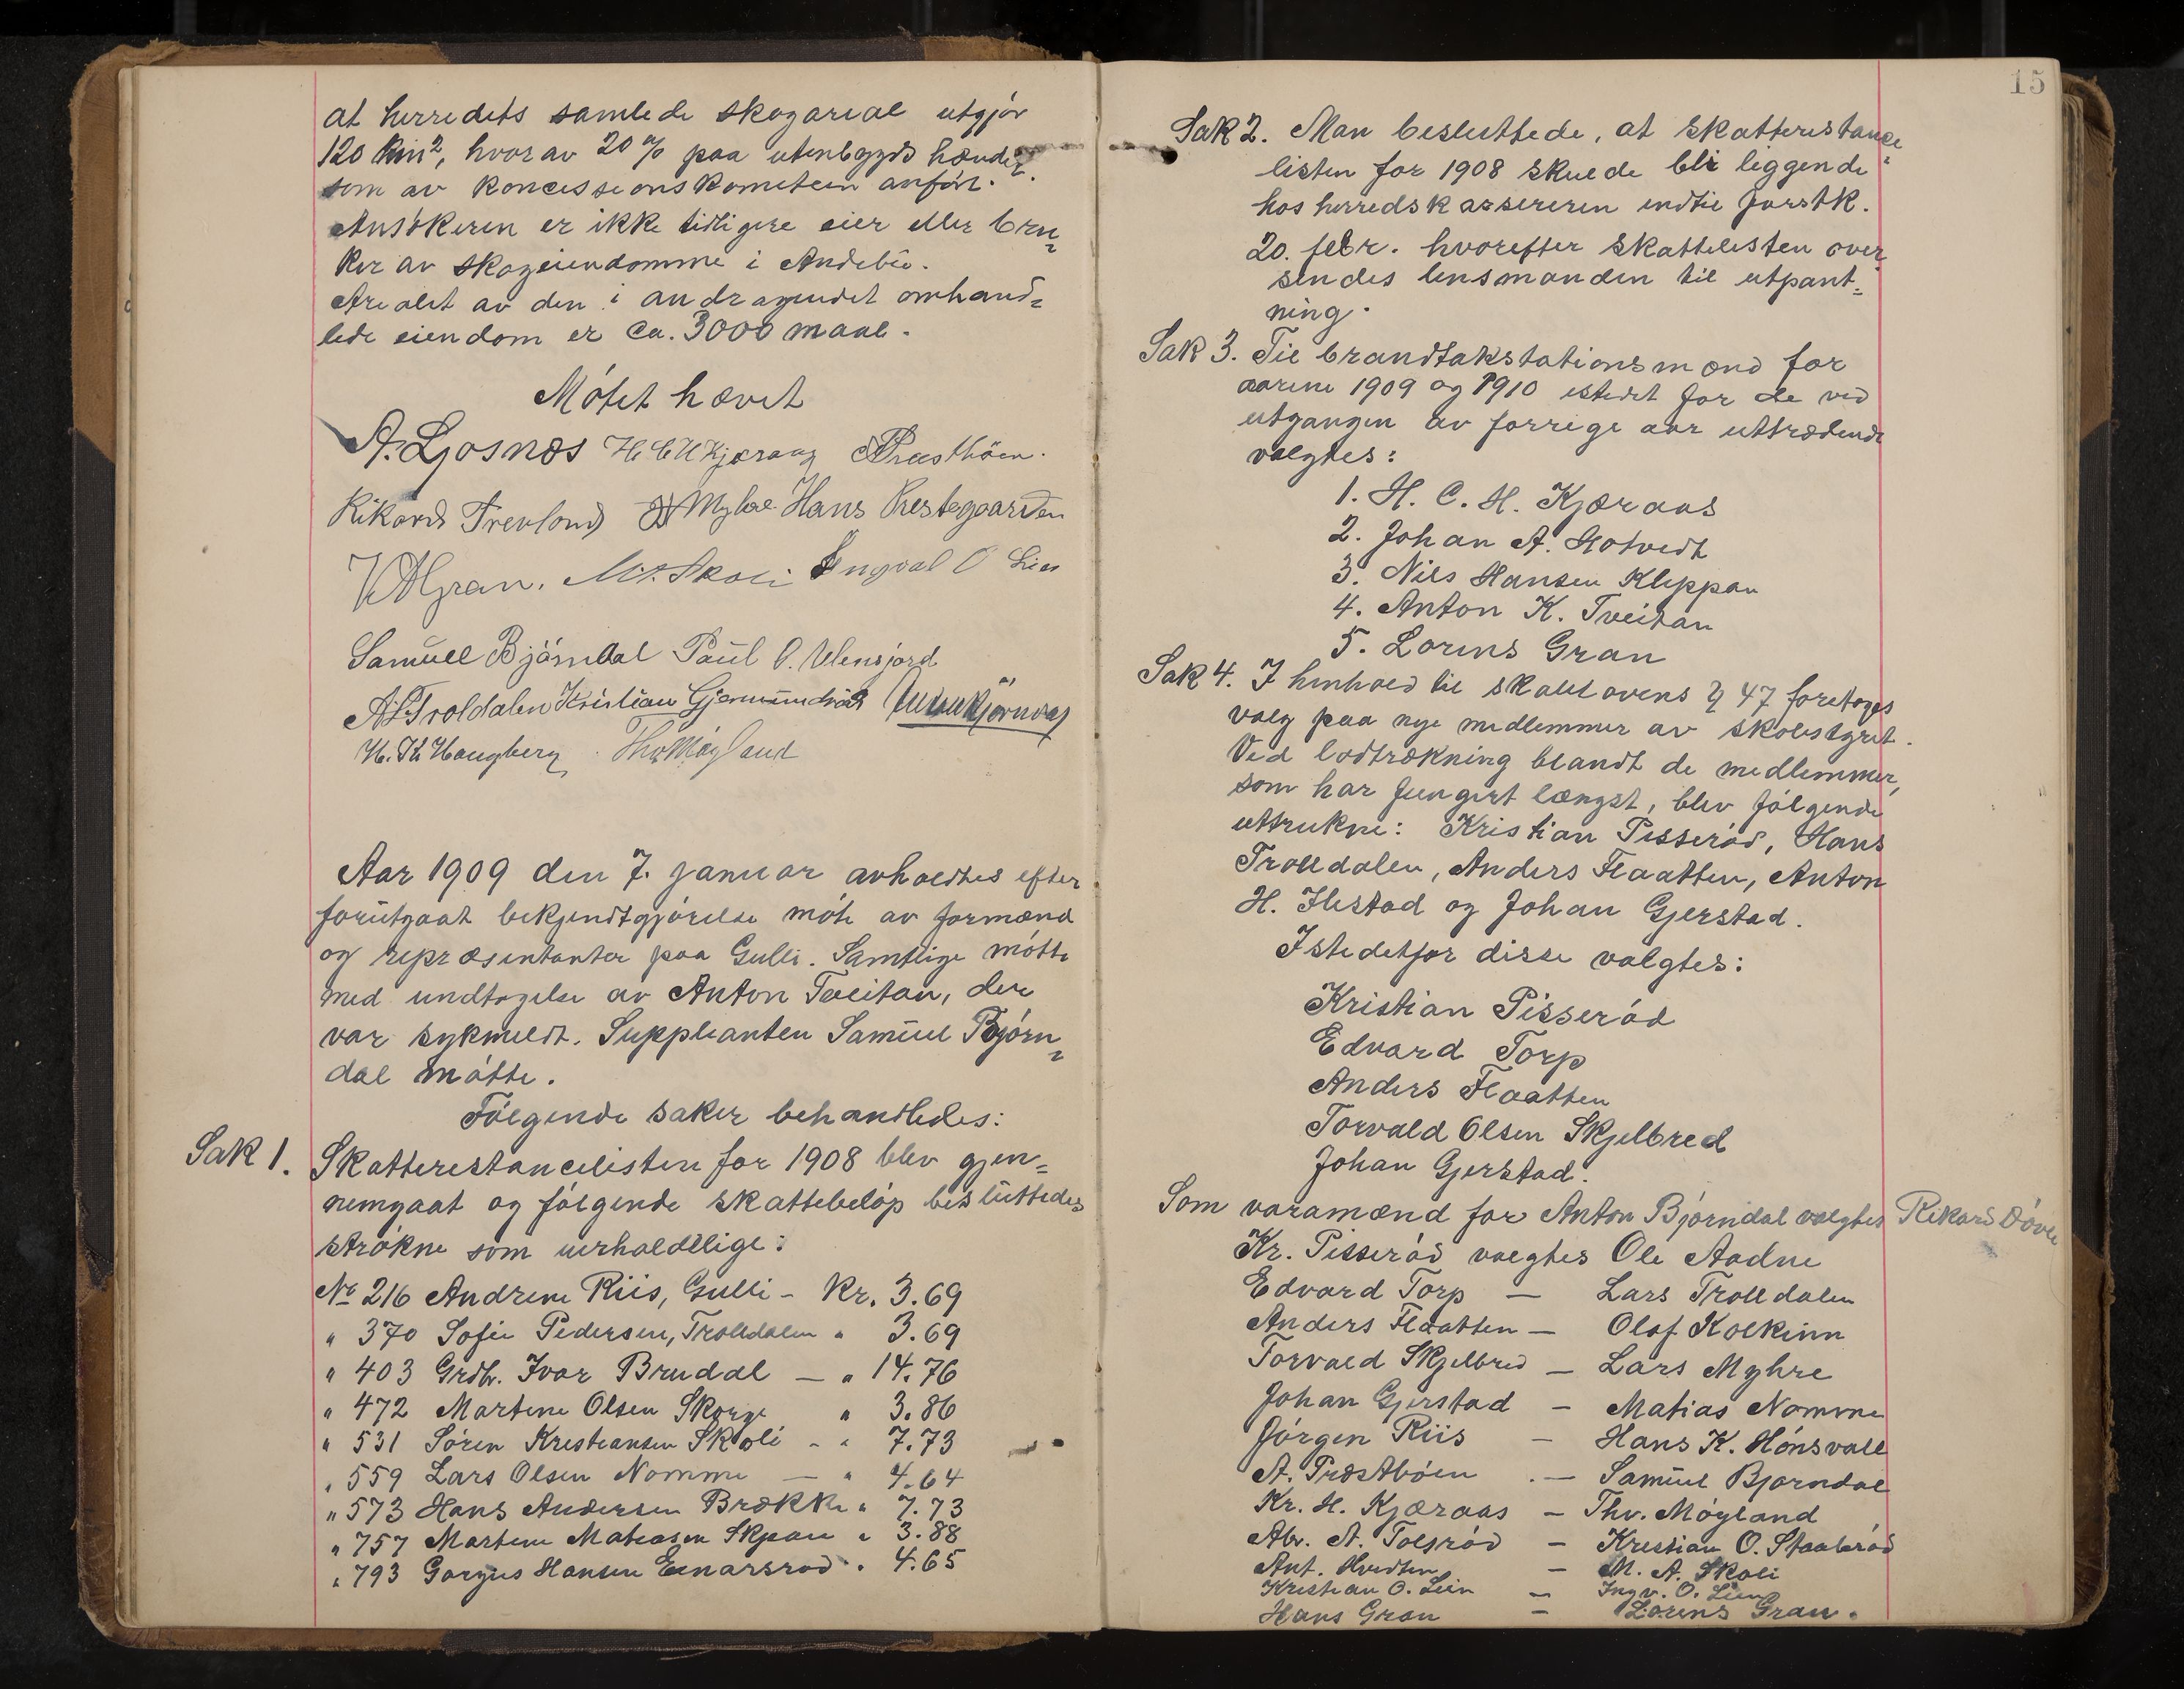 at herredets samlede skogareal utgjør
120 km², hvorav 20% paa utenbygds hænder
som av koncessionskomiteen anført.
Ansøkeren er ikke tidligere eier eller bru=
ker av skogeiendomme i Andebu.
Arealet av den i andragendet omhand=
lede eiendom er ca. 3000 maal.
Møtet hævet
A. Ljosnæs H C H Kjæraas A Præstbøen.
Rikard Trevland Myhre Hans Prestegaarden
H Gran. M. A. Skoli Ingval O Lien
Samuel Bjørndal Paul O. Ulensjord
A L Troldalen Kristian Gjermundrød Anton Bjørndal
H. Th Haugberg Thv Møyland
Aar 1909 den 7. januar avholdtes efter
forutgaat bekjendtgjørelse møte av formænd
og repræsentanter paa Gulli. Samtlige møtte
med undtagelse av Anton Tveitan, der
var sykmeldt. Suppleanten Samuel Bjørn=
dal møtte.
Følgende saker behandledes:
Sak 1. Skatterestancelisten for 1908 blev gjen=
nemgaat og følgende skattebeløp besluttedes
strøkne som uerholdelige:
No 216 Andrene Riis, Gulli - Kr. 3.69
" 370 Sofie Pedersen, Trolldalen " 3.69
" 403 Grdbr. Ivar Brudal — " 14.76
" 472 Martine Olsen Skorge " 3.86
" 531 Søren Kristiansen Skoli - " 7.73
" 559 Lars Olsen Nomme — " 4.64
" 573 Hans Andersen Brække " 7.73
" 757 Martine Matiasen Skjeau " 3.88
" 793 Gorgus Hansen Einarsrød " 4.65
15
Sak 2. Man besluttede, at skatterestance=
listen for 1908 skulde bli liggende
hos herredskassereren indtil førstk.
20. febr. hvorefter skattelisten over=
sendes lensmanden til utpant=
ning.
Sak 3. Til brandtakstationsmænd for
aarene 1909 og 1910 istedet for de ved
utgangen av forrige aar uttrædende
valgtes:
1. H. C. H. Kjæraas
2. Johan A. Hotvedt
3. Nils Hansen Kleppan
4. Anton K. Tveitan
5. Lorens Gran
Sak 4. I henhold til skolelovens § 47 foretoges
valg paa nye medlemmer av skolestyret.
Ved lodtrækning blandt de medlemmer,
som har fungert længst, blev følgende
uttrukne: Kristian Pisserød, Hans
Trolldalen, Anders Flaatten, Anton
H. Ilestad og Johan Gjerstad.
Istedetfor disse valgtes:
Kristian Pisserød
Edvard Torp
Anders Flaatten
Torvald Olsen Skjelbred
Johan Gjerstad.
Som varamænd for Anton Bjørndal valgtes Rikard Døvle
Kr. Pisserød valgtes Ole Aadne
Edvard Torp — Lars Trolldalen
Anders Flaatten — Olaf Kolkinn
Torvald Skjelbred — Lars Myhre
Johan Gjerstad — Matias Nomme
Jørgen Riis — Hans K. Hønsvall
A. Præstbøen — Samuel Bjørndal
Kr. H. Kjæraas — Thv. Møyland
Abr. A. Tolsrød — Kristian O. Staalerød
Ant. Hvidten — M. A. Skoli
Kristian O. Lein — Ingv. O. Lien
Hans Gran — Lorens Gran.